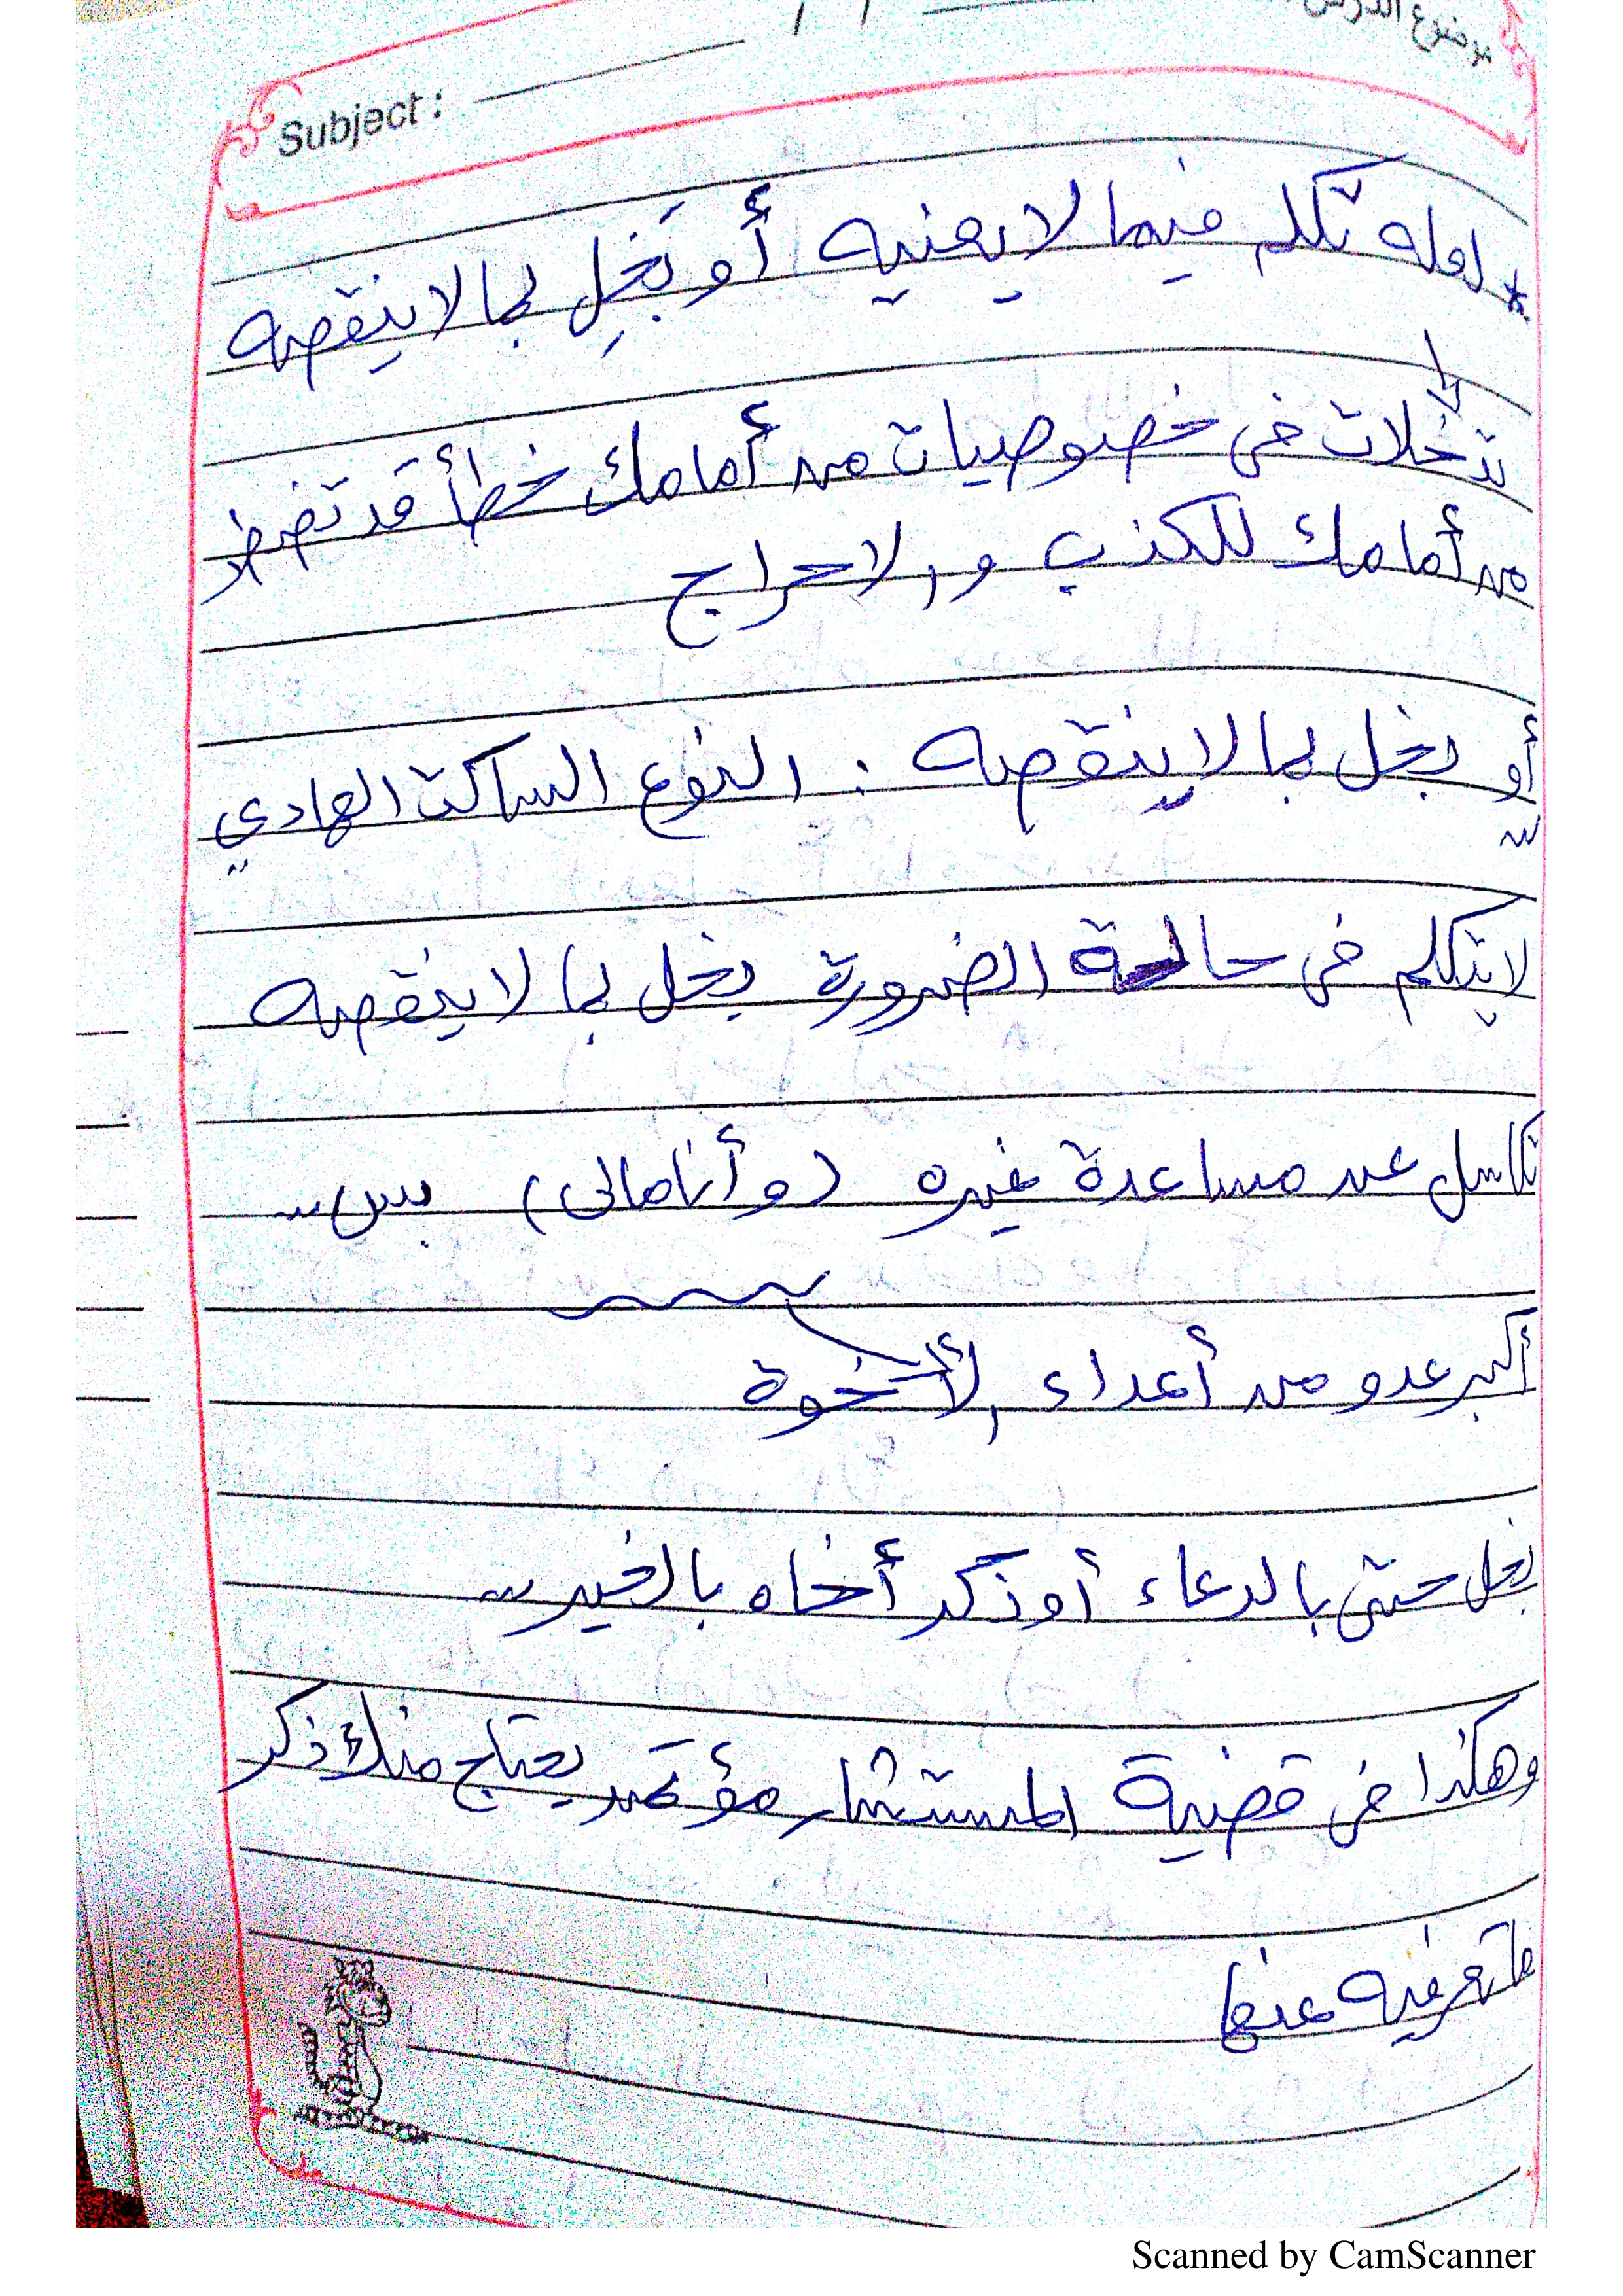 موضوع الدرس
Subject :
* لعله تكلم فيما لا يعنيه أو بَخِل بما لا ينقصه
تدخلات في خصوصيات من أمامك خطأ قد تضطر
من أمامك للكذب والاحراج
أو بخل بما لا ينقصه : النوع الساكت الهادي
لا يتكلم في حالة الضرورة بخل بما لا ينقصه
تكاسل عن مساعدة غيره (و أنا مالى) بس
أكبر عدو من أعداء الأخوة
بخل حتى بالدعاء أو ذكر أخاه بالخير
وهكذا في قضية المستشار مؤتمن يحتاج منك ذكر
ما تعرفيه عنها
Scanned by CamScanner